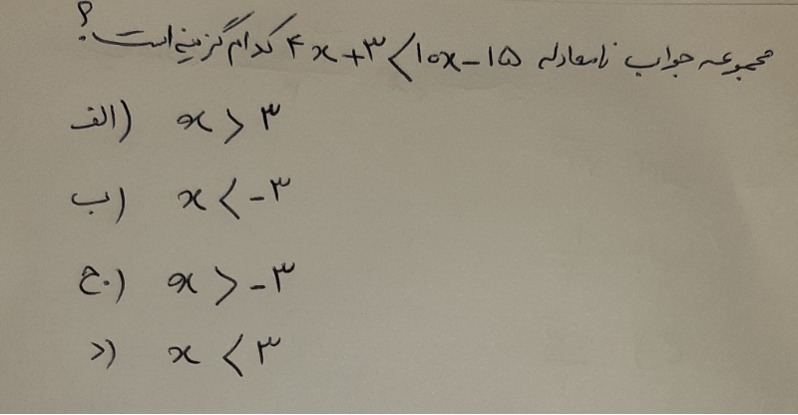 مجموعه جواب نامعادله ۴x+۳<۱۰x-۱۵ کدام گزینه است؟
الف) x > ۳
ب) x < -۳
ج) x > -۳
د) x < ۳